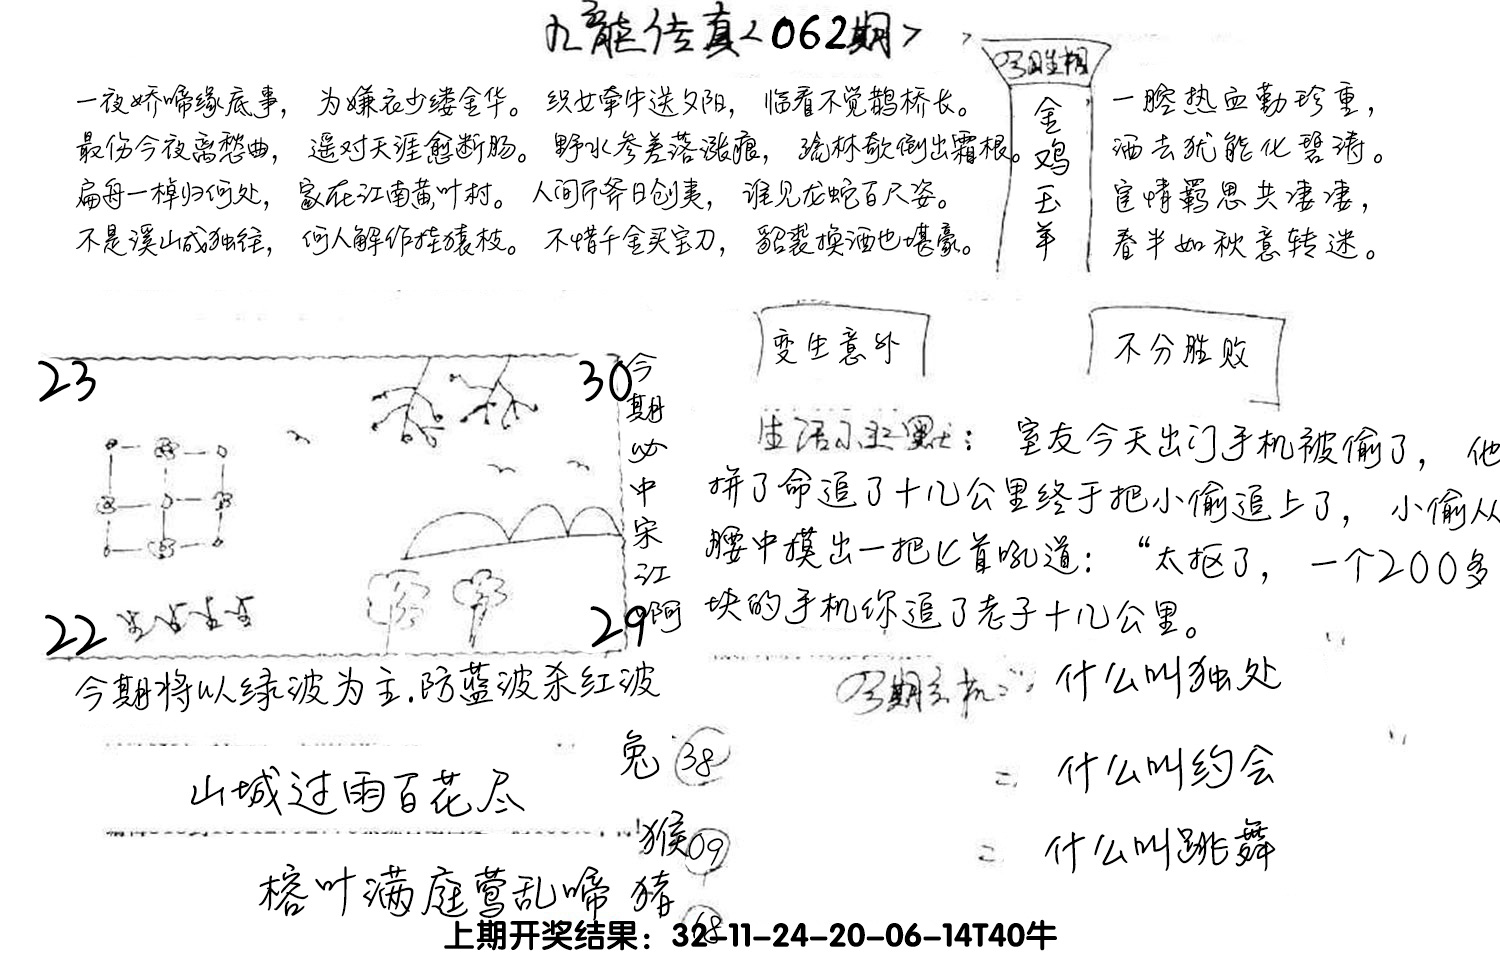 九龙传真<062期>
一夜娇啼缘底事，为嫌衣少缕金华。织女牵牛送夕阳，临看不觉鹊桥长。
最伤今夜离愁曲，遥对天涯愈断肠。野水参差落涨痕，疏林欹倒出霜根。
扁舟一棹归何处，家在江南黄叶村。人间斤斧日创夷，谁见龙蛇百尺姿。
不是溪山成独往，何人解作挂猿枝。不惜千金买宝刀，貂裘换酒也堪豪。
金鸡玉羊
一腔热血勤珍重，
洒去犹能化碧涛。
宦情羁思共凄凄，
春半如秋意转迷。
变生意外
不分胜败
23
30
22
29
今期必中宋江啊
生活小幽默：室友今天出门手机被偷了，他
拼了命追了十几公里终于把小偷追上了，小偷从
腰中摸出一把匕首吼道：“太抠了，一个200多
块的手机你追了老子十几公里。
今期将以绿波为主.防蓝波杀红波
今期玄机一：什么叫独处
二 什么叫约会
二 什么叫跳舞
山城过雨百花尽
榕叶满庭莺乱啼
兔 38
猴 09
猪 68
上期开奖结果：32-11-24-20-06-14T40牛